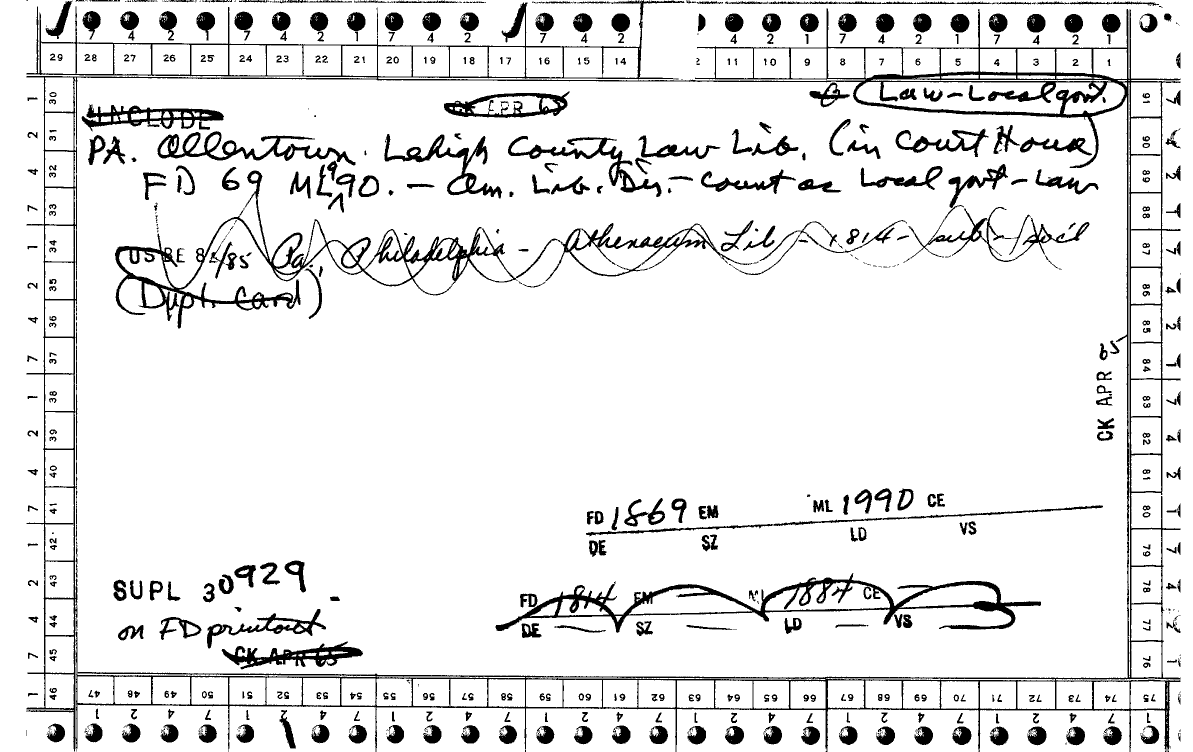 7 4 2 7 4 2 1 7 4 2 1 7 4 2 4 2 1 7 4 2 1 7 4 2 1
29 28 27 26 25 24 23 22 21 20 19 18 17 16 15 14 11 10 9 8 7 6 5 4 3 2 1
UNCLUDE CK APR 65 Law-Local govt.
PA. Allentown. Lehigh County Law Lib. (in Court House)
FD 69 ML 90. — Am. Lib. Dir. — Count as Local govt - Law
USBE 84/85 Pa., Philadelphia - Athenaeum Lib - 1814 - sub - soc'l
(Dupl. Card)
CK APR 65
FD 1869 EM ML 1990 CE
DE SZ LD VS
SUPL 30929
FD 1814 EM ML 1884 CE
on FD printout
DE SZ LD VS
CK APR 65
30 31 32 33 34 35 36 37 38 39 40 41 42 43 44 45 46
91 90 89 88 87 86 85 84 83 82 81 80 79 78 77 76 75
47 48 49 50 51 52 53 54 55 56 57 58 59 60 61 62 63 64 65 66 67 68 69 70 71 72 73 74